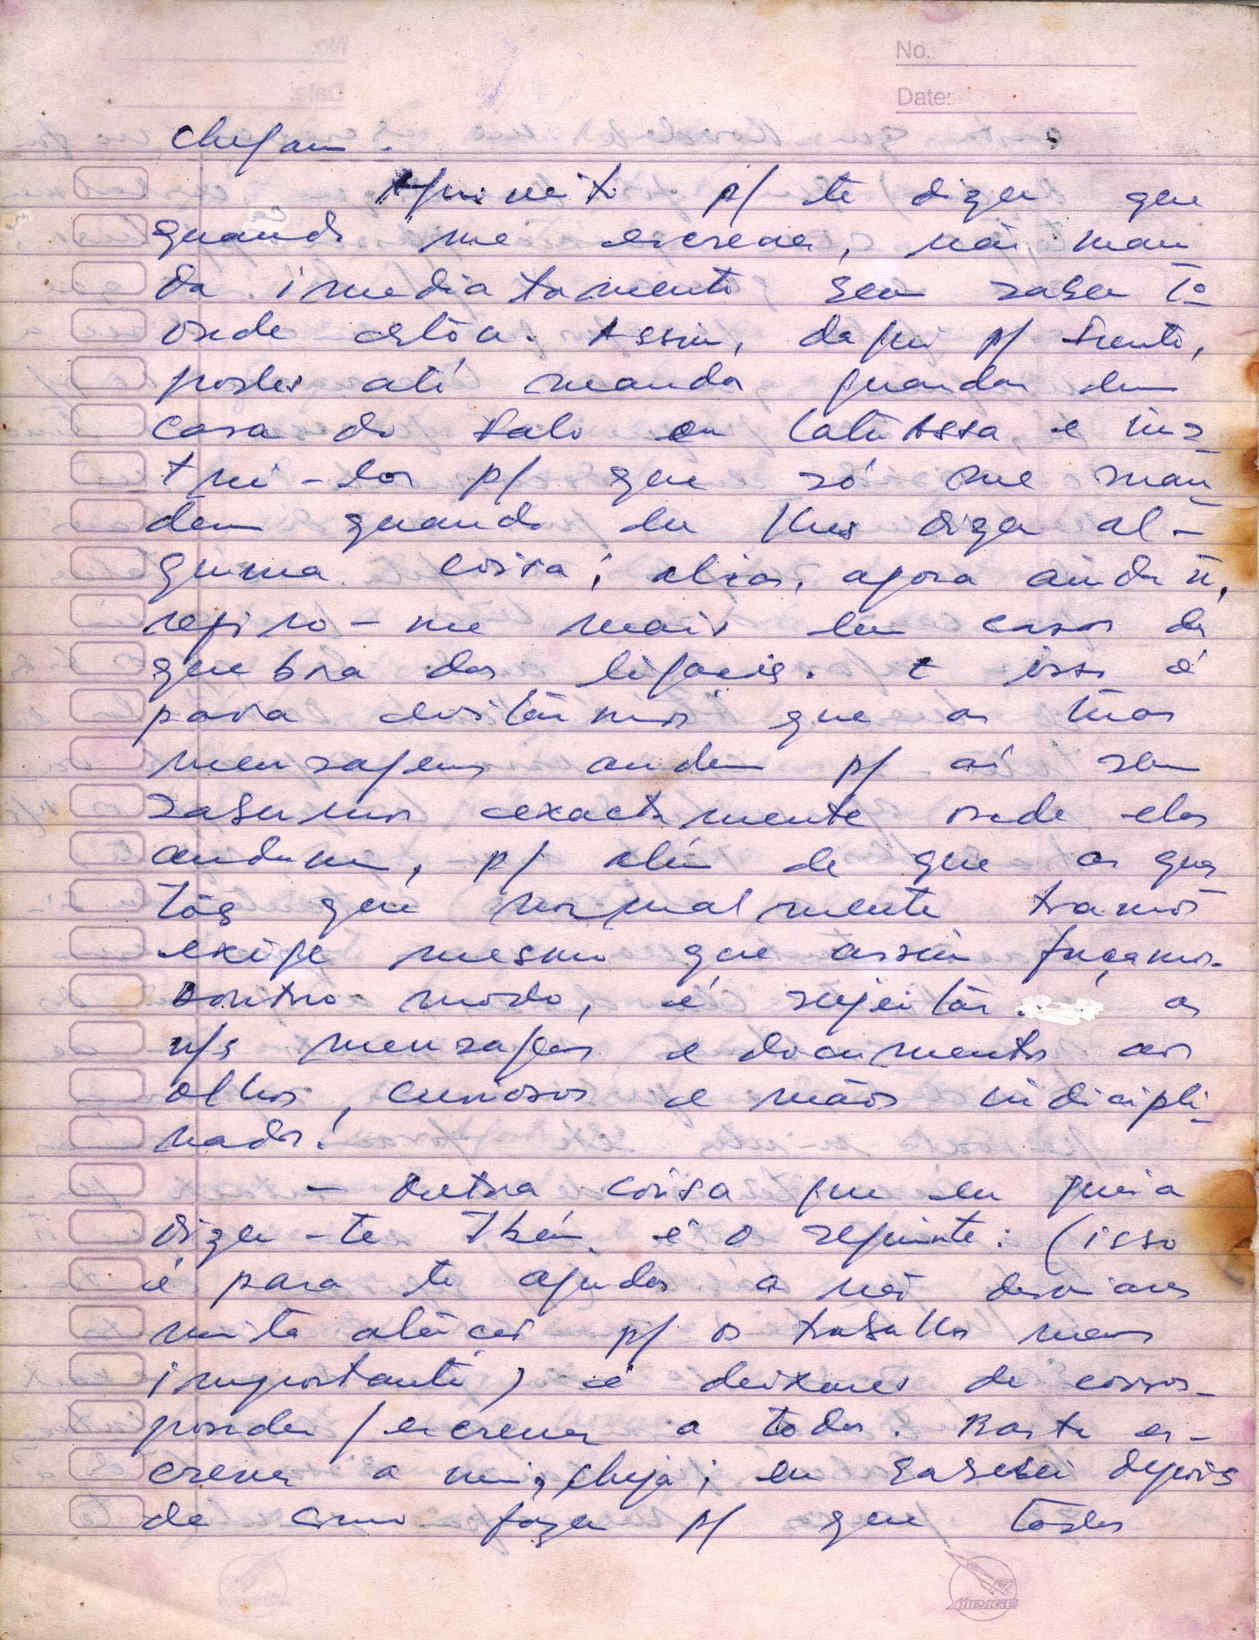 No.
Date:
chegam.
Aproveito p/ te dizer que
quando me escreves, não man
da imediatamente sem saber
onde estou. Assim, daqui p/ frente,
podes até mandar guardar em
casa do Lalo ou e ins
trui-los p/ que só me man
dem quando eu lhes diga al-
guma coisa; aliás, agora ainda ñ,
refiro-me mais em casos de
quebra das ligações. E isso é
para evitármos que as tuas
mensagens andem p/ aí sem
sabermos exactamente onde elas
andam, p/ além de que as ques
tões que normalmente tramos
exige mesmo que assim façamos.
Doutro modo, é sujeitar as
n/s mensagens e documentos aos
olhos curiosos e mãos indicipli-
nados!
- Outra coisa que eu queria
dizer-te tbém é o seguinte: (isso
é para te ajudar a não desviares
muita atenção p/ os trabalhos menos
importante) é deixares de corres-
ponder/escrever a todos. Basta es-
crever a mim, chega; eu saberei depois
de como fazer p/ que todos